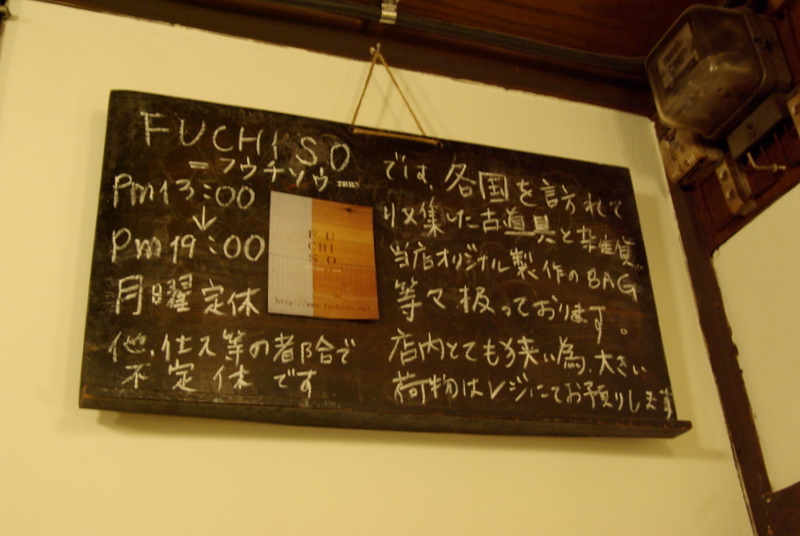 FUCHISO
=フウチソウ=
Pm13:00
↓
Pm19:00
月曜定休
他、仕入等の都合で
不定休です
FU
CHI
SO
http://www.fuchiso.net
です、各国を訪れて
収集した古道具と雑貨、
当店オリジナル製作のBAG
等々扱っております。
店内とても狭い為、大きい
荷物はレジにてお預りします